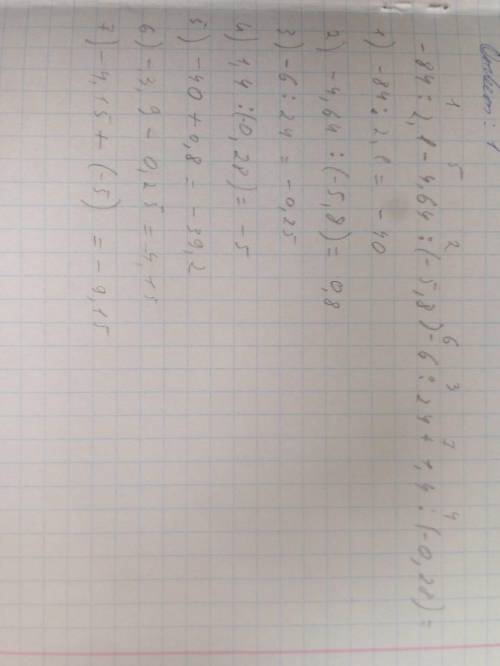 Ответ: 1
1 5 2 6 3 7 4
-84 : 2,1 - 4,64 : (-5,8) - 6 : 24 + 1,4 : (-0,28) =
1) -84 : 2,1 = -40
2) -4,64 : (-5,8) = 0,8
3) -6 : 24 = -0,25
4) 1,4 : (-0,28) = -5
5) -40 + 0,8 = -39,2
6) -3,9 - 0,25 = -4,15
7) -4,15 + (-5) = -9,15